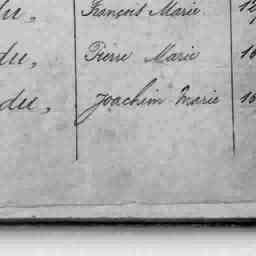 du, François Marie 1
du, Pierre Marie 16
du, Joachim Marie 16